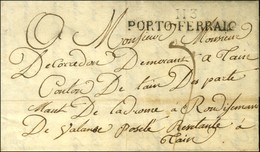 113
PORTO-FERRAIO
A Monsieur Monsieur
De Corredon Demorant a Tain
Canton De tain Des parte
Mant De ladrome a Roudisement
De Valance poste Restante a
Tain